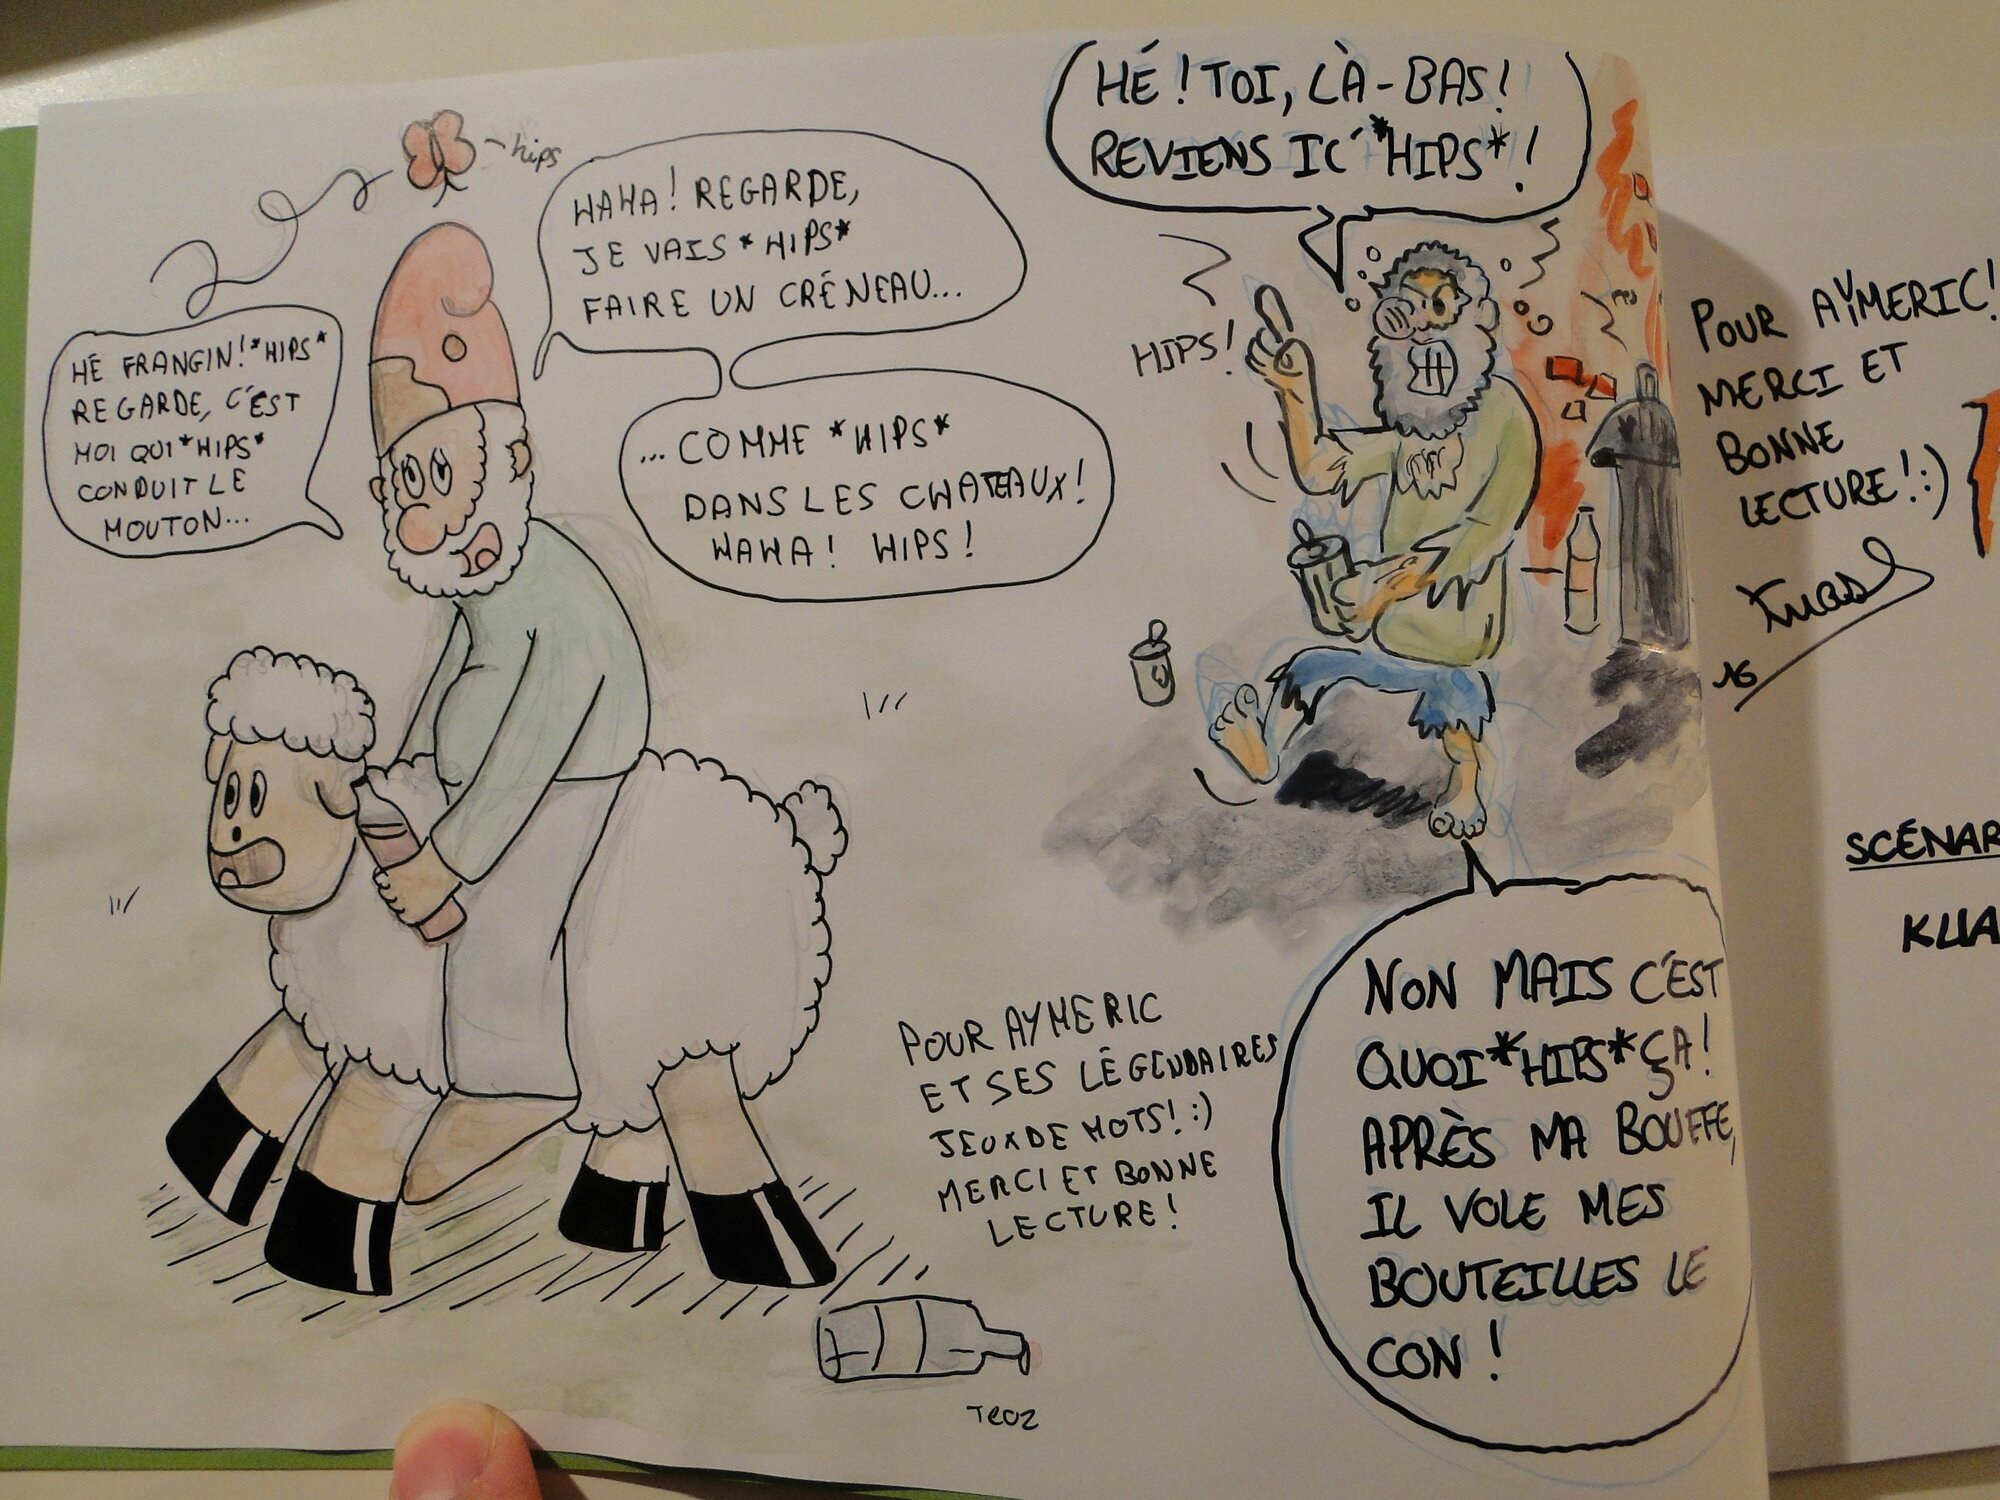 hips
HAHA! REGARDE,
JE VAIS *HIPS*
FAIRE UN CRÉNEAU...
HÉ FRANGIN! *HIPS*
REGARDE, C'EST
MOI QUI *HIPS*
CONDUIT LE
MOUTON...
...COMME *HIPS*
DANS LES CHATEAUX!
HAHA! HIPS!
POUR AYMERIC
ET SES LÉGENDAIRES
JEUX DE MOTS! :)
MERCI ET BONNE
LECTURE!
TEOZ
HÉ! TOI, LÀ-BAS!
REVIENS IC' *HIPS*!
HIPS!
NON MAIS C'EST
QUOI *HIPS* ÇA!
APRÈS MA BOUFFE,
IL VOLE MES
BOUTEILLES LE
CON!
POUR AYMERIC!
MERCI ET
BONNE
LECTURE! :)
SCÉNAR